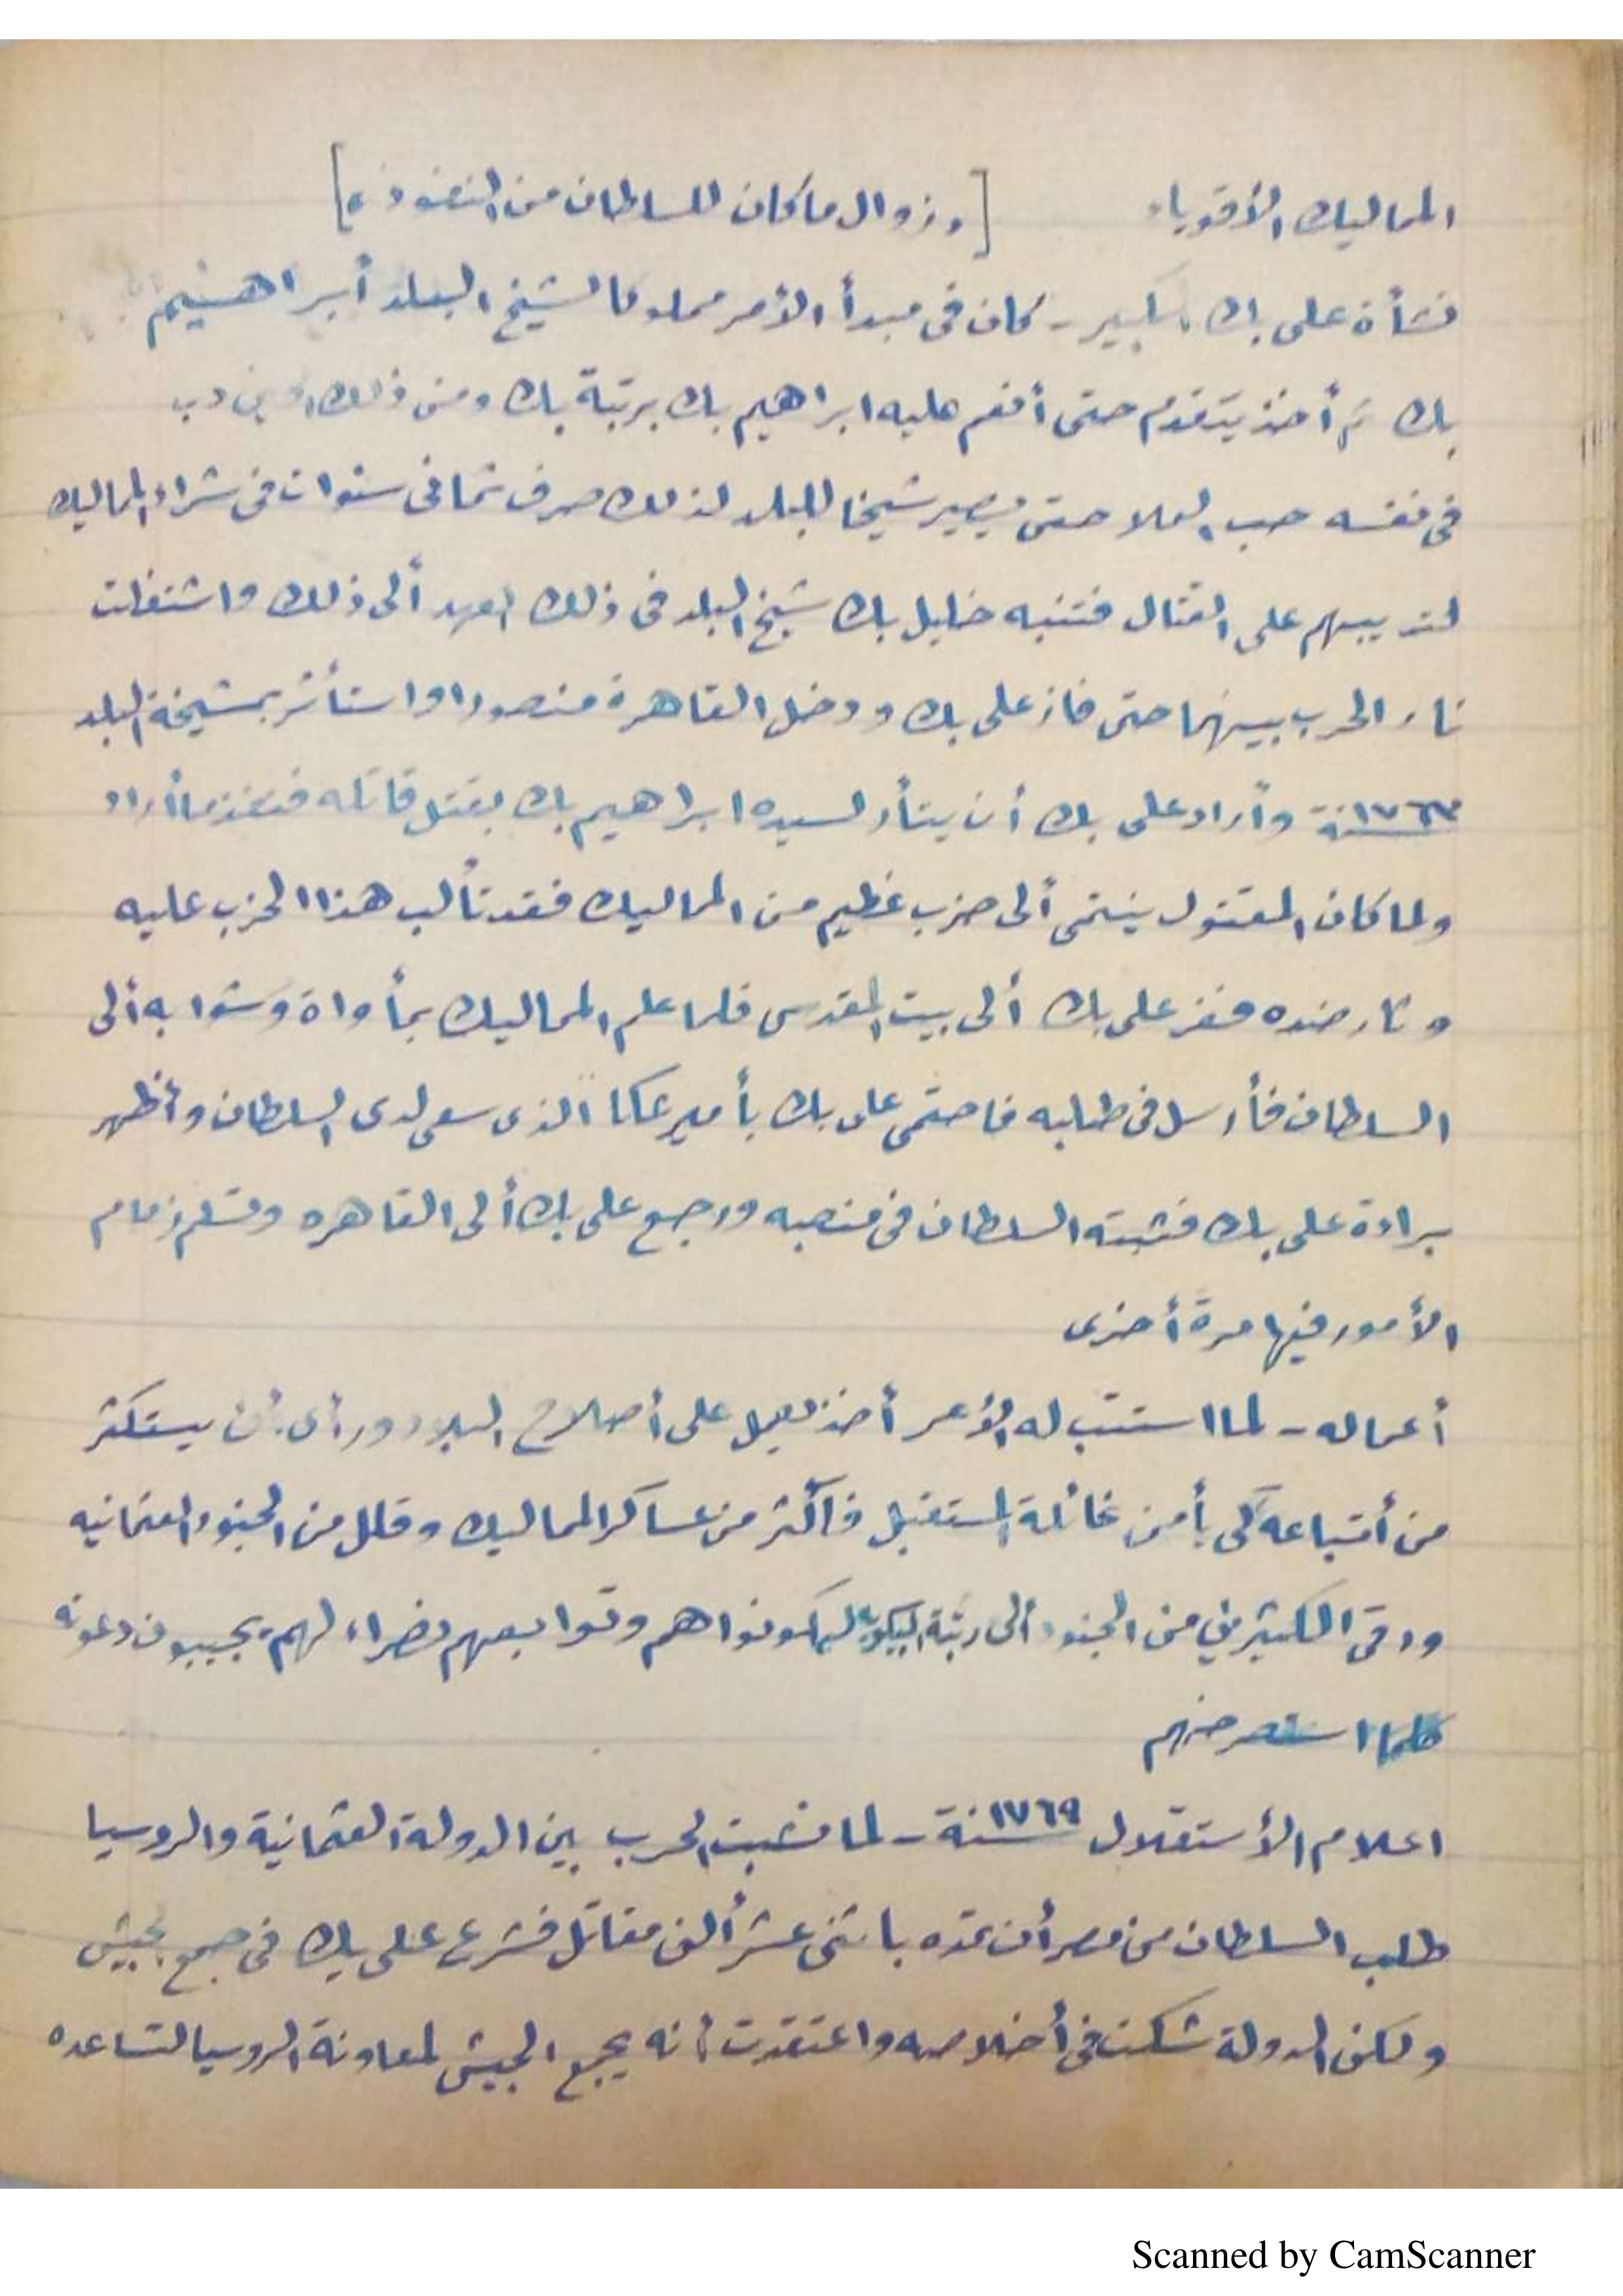 المماليك الأقوياء [وزوال ما كان للسلطان من النفوذ]
نشأة على بك الكبير - كان فى مبدأ الأمر مملوكا لشيخ البلد أبراهيم
بك ثم أخذ يتقدم حتى أنعم عليه ابراهيم بك برتبة بك ومن ذلك الحين دب
فى نفسه حب العلا حتى يصير شيخا للبلد لذلك صرف ثمانى سنوات فى شراء المماليك
لتدريبهم على القتال فتنبه خليل بك شيخ البلد فى ذلك العهد ألى ذلك واشتعلت
نار الحرب بينهما حتى فاز على بك ودخل القاهرة منصورا واستأثر بمشيخة البلد
سنة ١٧٦٣ وأراد على بك أن يثأر لسيده ابراهيم بك بقتل قاتله فنفذ ما أراد
ولما كان المقتول ينتمى ألى حزب عظيم من المماليك فقد تألب هذا الحزب عليه
وثار ضده ففر على بك ألى بيت المقدس فلما علم المماليك بمأواة وشوا به ألى
السلطان فأرسل فى طلبه فاحتمى على بك بأمير عكا الذى سعى لدى السلطان وأظهر
براءة على بك فثبته السلطان فى منصبه ورجع على بك ألى القاهره وتسلم زمام
الأمور فيها مرة أخرى
أعماله - لما استتب له الأمر أخذ يعمل على أصلاح البلاد ورأى أن يستكثر
من أتباعه كى يأمن غائلة المستقبل فأكثر من عساكر المماليك وقلل من الجنود العثمانيه
ورقى الكثيرين من الجنود ألى رتبة البيكويه ليكونوا هم وتوابعهم نصراء لهم يجيبون دعوته
كلما استصرخهم
اعلام الأستقلال سنة ١٧٦٩ - لما نشبت الحرب بين الدولة العثمانية والروسيا
طلب السلطان من مصر أن تمده باثنى عشر ألف مقاتل فشرع على بك فى جمع الجيش
ولكن الدولة شكت فى أخلاصه واعتقدت أنه يجمع الجيش لمعاونة الروسيا لتساعده
Scanned by CamScanner